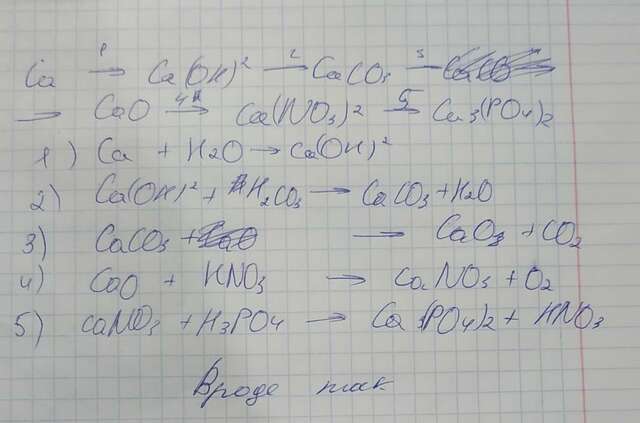 Ca 1→ Ca(OH)² 2→ CaCO₃ 3→
→ CaO 4→ Ca(NO₃)₂ 5→ Ca₃(PO₄)₂
1) Ca + H₂O → Ca(OH)²
2) Ca(OH)² + H₂CO₃ → CaCO₃ + H₂O
3) CaCO₃ + → CaO₃ + CO₂
4) CaO + HNO₃ → CaNO₃ + O₂
5) CaNO₃ + H₃PO₄ → Ca₃(PO₄)₂ + HNO₃
Вроде так